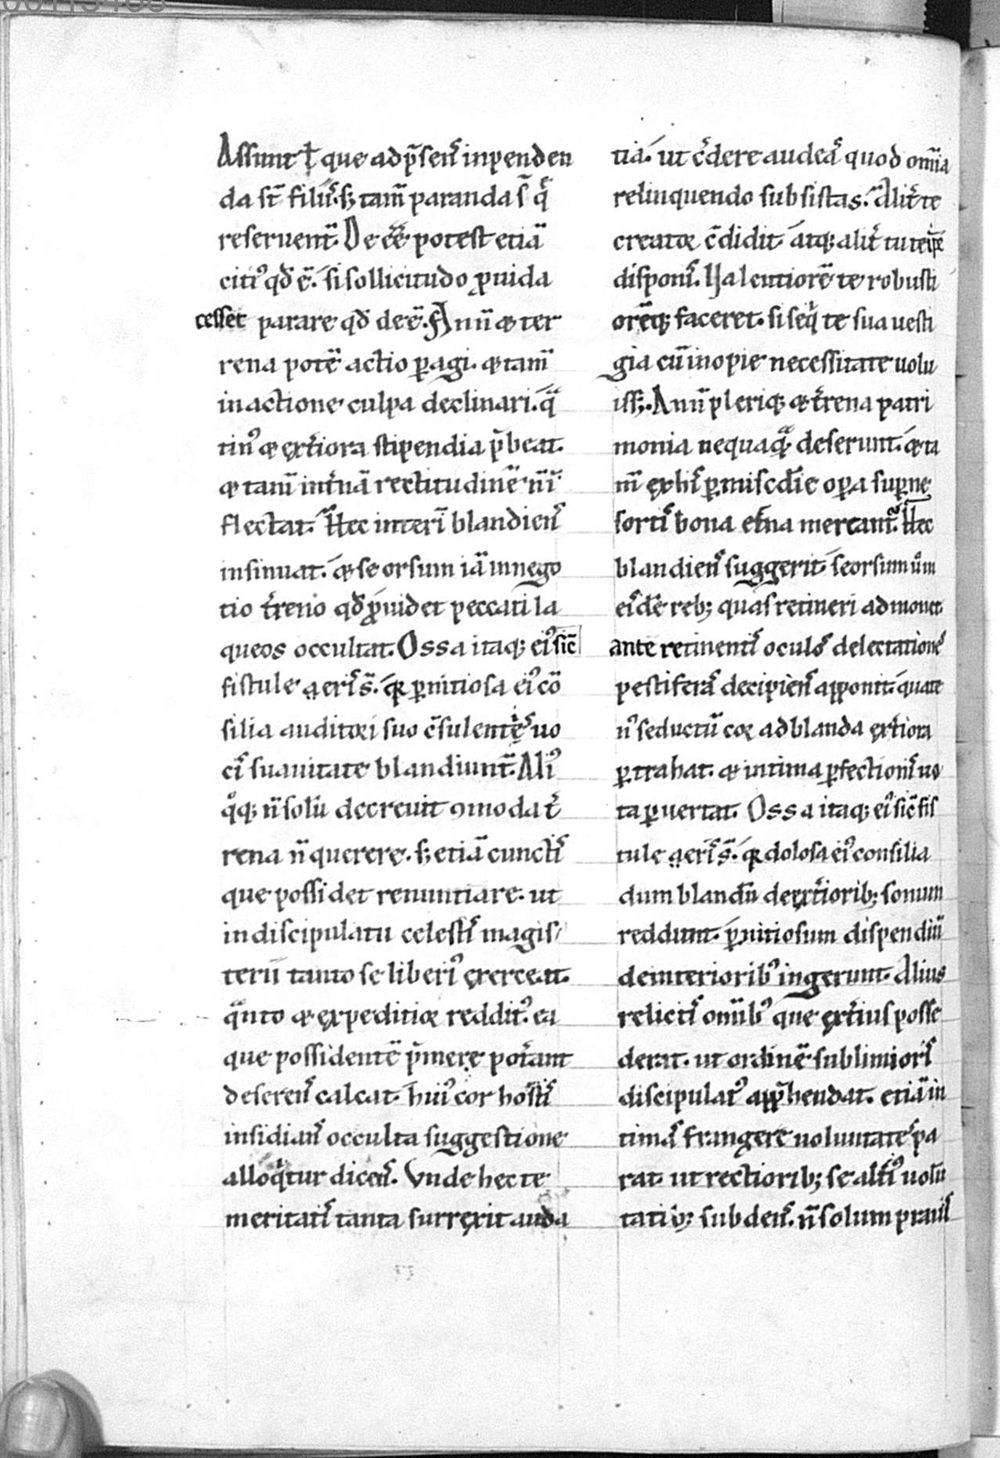 Assunt ť que ad p̄sens̄ inpenden
da st̄ filiis. s; tam̄ paranda s̄ q̄
reseruent᷑. De eē potest etiā
citi᷒ qd̄ ē. si sollicitudo ꝓuida
cesset parare qd̄ deē. An n̄ & ter
rena potē actio ꝑagi. & tam̄
in actione culpa declinari. q̄
tin᷒ & ext̄iora stipendia p̄beat.
& tam̄ int̄nā rectitudinē n̄
flectat. Hec interī blandiens̄
insinuat. & seorsum iā in nego
tio t̄reno qd̄ ꝓuidet peccati la
queos occultat. Ossa itaq; ei᷒ sic̄
fistule aeris s̄. q̄ ꝑnitiosa ei᷒ cō
silia auditori suo c̄sulentis uo
cis̄ suauitate blandiunt᷑. Ali᷒
q̊q; n̄ solū decreuit ꝯmoda t̄
rena n̄ querere. s; etiā cunctis̄
que possidet renuntiare. ut
in discipulatu celestis̄ magis
terii tanto se liberi᷒ exerceat.
q̄nto & expeditior reddit᷒. ea
que possidentē p̄mere pot̄ant
deserens̄ calcat. hui᷒ cor hostis̄
insidians̄ occulta suggestione
alloq̄tur dicens̄. Vnde hec te
meritatis̄ tanta surrexit auda
tia. ut c̄dere audeas̄ quod om̄ia
relinquendo subsistas. Alit̄ te
creator c̄didit. atq; alit̄ tu teip̄e
disponis̄. Valentiorē te robusti
orēq; faceret. si seq̄ te sua uesti
gia cū inopie necessitate uolu
iss;. An n̄ pleriq; & t̄rena patri
monia nequaq̄ deserunt. & ta
m̄ ex his̄ ꝑ misc̄die oꝑa suꝑne
sortis̄ bona et̄na mercant᷑. Hec
blandiens̄ suggerit. seorsum u᷒um
eisdē reb; quas retineri admonet
ante retinentis̄ oculos̄ delectationes̄
pestiferas̄ decipiens̄ apponit. quate
n᷒ seductū cor ad blanda ext̄iora
ꝑtrahat. & intima ꝑfectionis̄ uo
ta ꝑuertat. Ossa itaq; ei᷒ sic̄ fis
tule aeris s̄. q̄ dolosa ei᷒ consilia
dum blandū de ext̄iorib; sonum
reddunt. ꝑnitiosum dispendiū
de interiorib᷒ ingerunt. Alius
relictis̄ om̄ib᷒ que ext̄ius posse
derat. ut ordinē sublimioris̄
discipulat᷒ app̄hendat. etiā in
timas̄ frangere uoluntates̄ pa
rat. ut rectiorib; se alt̄i᷒ uolū
tatib; subdens̄. n̄ solum prauis̄